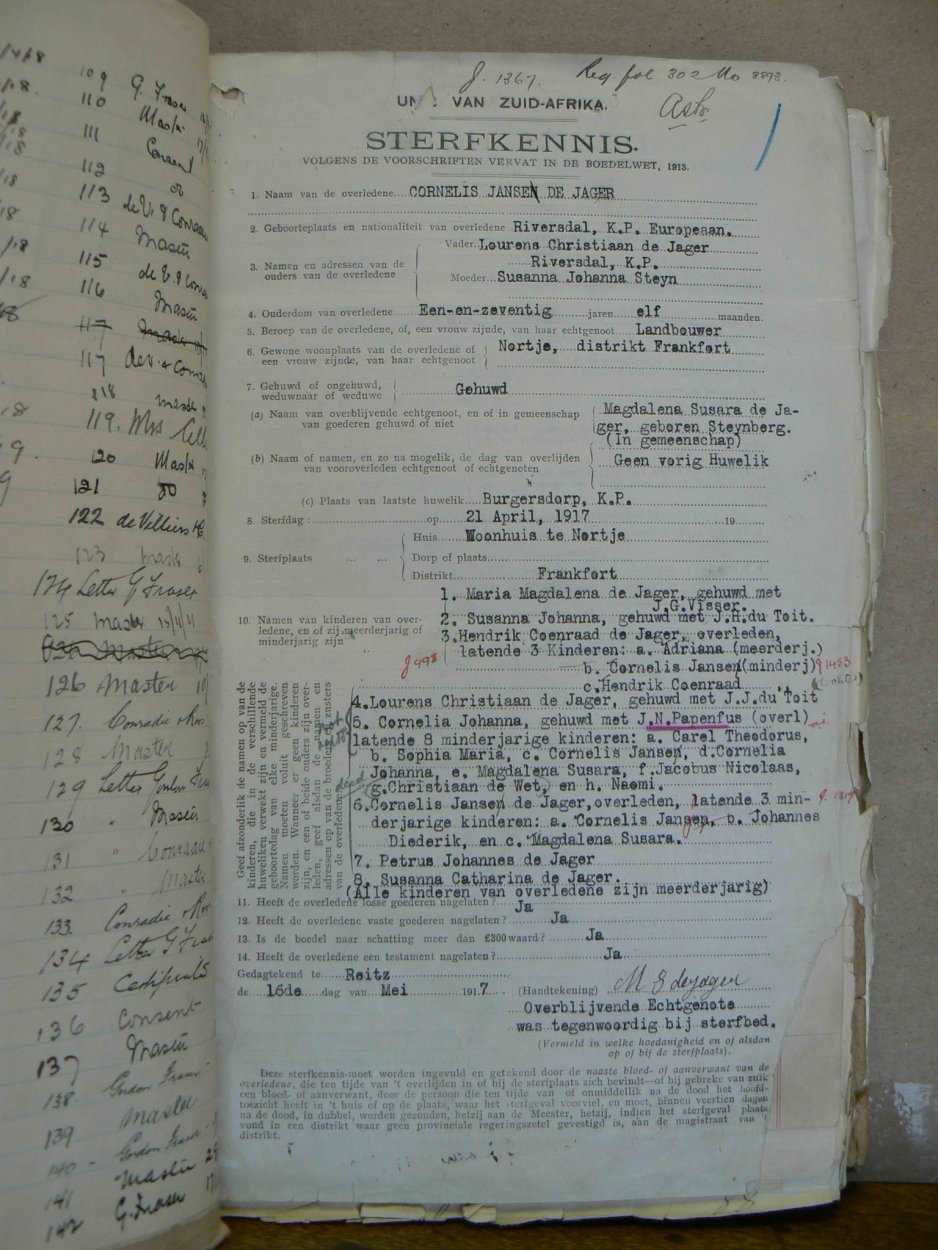 109 G. Fraser
110 Master
111 Consent
112 do
113 de V. & Conradie
114 Master
115 de V. &
116 Master
117 Master
117 dev. + Conra
118 master
119. Mrs
120 Mast
121 do
122 de Villiers
123 mast
124 Letter G Fraser
125 Master 15/4/21
126 Master
127. Conradie & Roo
128 Master
129 Letter Gordon Fras
130 " Master
131 " Conraa
132 " Master
133. Conradie & Roo
134 Letter G Fras
135
136 Consent
137 Master
138 Gordon Fraser
139 Master
140 - Gordon Fraser
141 Master
142 G. Fraser
J. 1367. Reg. fol 302 No 3893.
UN VAN ZUID-AFRIKA.
STERFKENNIS.
VOLGENS DE VOORSCHRIFTEN VERVAT IN DE BOEDELWET, 1913.
1. Naam van de overledene CORNELIS JANSEN DE JAGER
2. Geboorteplaats en nationaliteit van overledene Riversdal, K.P. Europeaan.
3. Namen en adressen van de ouders van de overledene
Vader Lourens Christiaan de Jager
Riversdal, K.P.
Moeder Susanna Johanna Steyn
4. Ouderdom van overledene Een-en-zeventig jaren elf maanden.
5. Beroep van de overledene, of, een vrouw zijnde, van haar echtgenoot Landbouwer
6. Gewone woonplaats van de overledene of een vrouw zijnde, van haar echtgenoot Nortje, distrikt Frankfort
7. Gehuwd of ongehuwd, weduwnaar of weduwe Gehuwd
(a) Naam van overblijvende echtgenoot, en of in gemeenschap van goederen gehuwd of niet
Magdalena Susara de Ja-
ger, geboren Steynberg.
(In gemeenschap)
(b) Naam of namen, en zo na mogelik, de dag van overlijden van vooroverleden echtgenoot of echtgenoten
Geen vorig Huwelik
(c) Plaats van laatste huwelik Burgersdorp, K.P.
8. Sterfdag : op 21 April, 1917 19
9. Sterfplaats ... ...
Huis Woonhuis te Nortje
Dorp of plaats
Distrikt Frankfort
10. Namen van kinderen van overledene, en of zij meerderjarig of minderjarig zijn
1. Maria Magdalena de Jager, gehuwd met
J.G.Visser.
2. Susanna Johanna, gehuwd met J.H.du Toit.
3.Hendrik Coenraad de Jager, overleden,
latende 3 Kinderen: a. Adriana (meerderj.)
J998 b. Cornelis Jansen(minderj) J1453
c.Hendrik Coenraad ,,
Geef afzonderlik de namen van de kinderen, die in de verschillende huweliken verwekt zijn en vermeld de geboortedag van elke minderjarige. Namen moeten voluit geschreven worden. Wanneer er geen kinderen zijn, en een of beide ouders zijn overleden, geef alsdan de namen en adressen op van de broeders en zusters van de overledene
4.Lourens Christiaan de Jager, gehuwd met J.J.du Toit
5. Cornelia Johanna, gehuwd met J.N.Papenfus (overl)
latende 8 minderjarige kinderen: a. Carel Theodorus,
b. Sophia Maria, c. Cornelis Jansen, d.Cornelia
Johanna, e. Magdalena Susara, f.Jacobus Nicolaas,
g.Christiaan de Wet, en h. Naomi.
6.Cornelis Jansen de Jager,overleden, latende 3 min-
derjarige kinderen: a. Cornelis Jansen, b. Johannes
Diederik, en c. Magdalena Susara.
7. Petrus Johannes de Jager
8. Susanna Catharina de Jager.
(Alle kinderen van overledene zijn meerderjarig)
11. Heeft de overledene losse goederen nagelaten? Ja
12. Heeft de overledene vaste goederen nagelaten? Ja
13. Is de boedel naar schatting meer dan £300 waard? Ja
14. Heeft de overledene een testament nagelaten? Ja
Gedagtekend te Reitz
de 16de dag van Mei 1917 (Handtekening) M S de Jager
Overblijvende Echtgenote
was tegenwoordig bij sterfbed.
(Vermeld in welke hoedanigheid en of alsdan
op of bij de sterfplaats).
Deze sterfkennis moet worden ingevuld en getekend door de naaste bloed- of aanverwant van de
overledene, die ten tijde van 't overlijden in of bij de sterfplaats zich bevindt—of bij gebreke van zulk
een bloed- of aanverwant, door de persoon die ten tijde van of onmiddellik na de dood het hoofd-
toezicht heeft in 't huis of op de plaats, waar het sterfgeval voorviel, en moet, binnen veertien dagen
na de dood, in dubbel, worden gezonden, hetzij aan de Meester, hetzij, indien het sterfgeval plaats
vond in een distrikt waar geen provinciale regeringszetel gevestigd is, aan de magistraat van
distrikt.